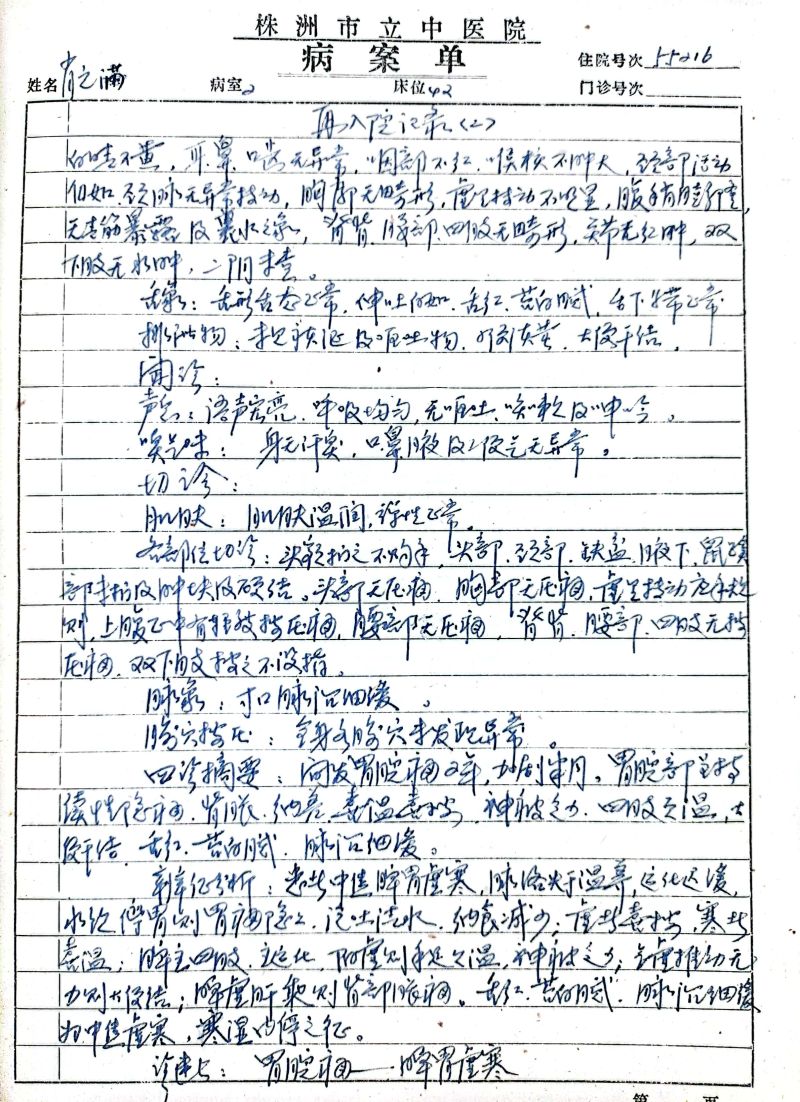 株洲市立中医院
病案单
住院号次 55216
姓名 肖之满 病室 2 床位 42 门诊号次
再入院记录(2)
白睛不黄,耳、鼻、口齿无异常,咽部不红,喉核不肿大,颈部活动
自如,颈脉无异常搏动,胸部无畸形,虚里搏动不明显,腹稍膨隆,
无青筋暴露及裹水之象,背脊、腰部、四肢无畸形,关节无红肿,双
下肢无水肿,二阴未查。
舌象:舌形舌态正常,伸吐自如,舌红、苔白腻,舌下络带正常
排出物:未见痰涎及呕吐物,小便淡黄,大便干结。
闻诊:
声息:语声宏亮,呼吸均匀,无呕吐、咳嗽及呻吟。
嗅气味:身无汗臭,口鼻腋及二便气无异常。
切诊:
肌肤:肌肤温润,弹性正常。
各部位切诊:头额扪之不灼手,头部、颈部、缺盆、腋下、鼠蹊
部未扪及肿块及硬结。头部无压痛,胸部无压痛,虚里搏动应手规
则,上腹正中有轻微按压痛,腰部无压痛,背脊、腰部、四肢无按
压痛,双下肢按之不没指。
脉象:寸口脉沉细缓。
腧穴按压:全身各腧穴未发现异常。
四诊摘要:间发胃脘痛2年,加剧半月。胃脘部呈持
续性隐痛,背胀、纳差、喜温喜按,神疲乏力,四肢欠温,大
便干结,舌红、苔白腻,脉沉细缓。
辨证分析:患者中焦脾胃虚寒,脉络失于温养,运化迟缓,
水饮停胃则胃痛隐隐,泛吐清水,纳食减少;虚者喜按,寒者
喜温;脾主四肢,主运化,阳虚则手足欠温,神疲乏力;气虚推动无
力则大便结;脾虚肝乘则背部胀痛。舌红、苔白腻,脉沉细缓
为中焦虚寒,寒湿内停之征。
诊断:胃脘痛——脾胃虚寒
第 页